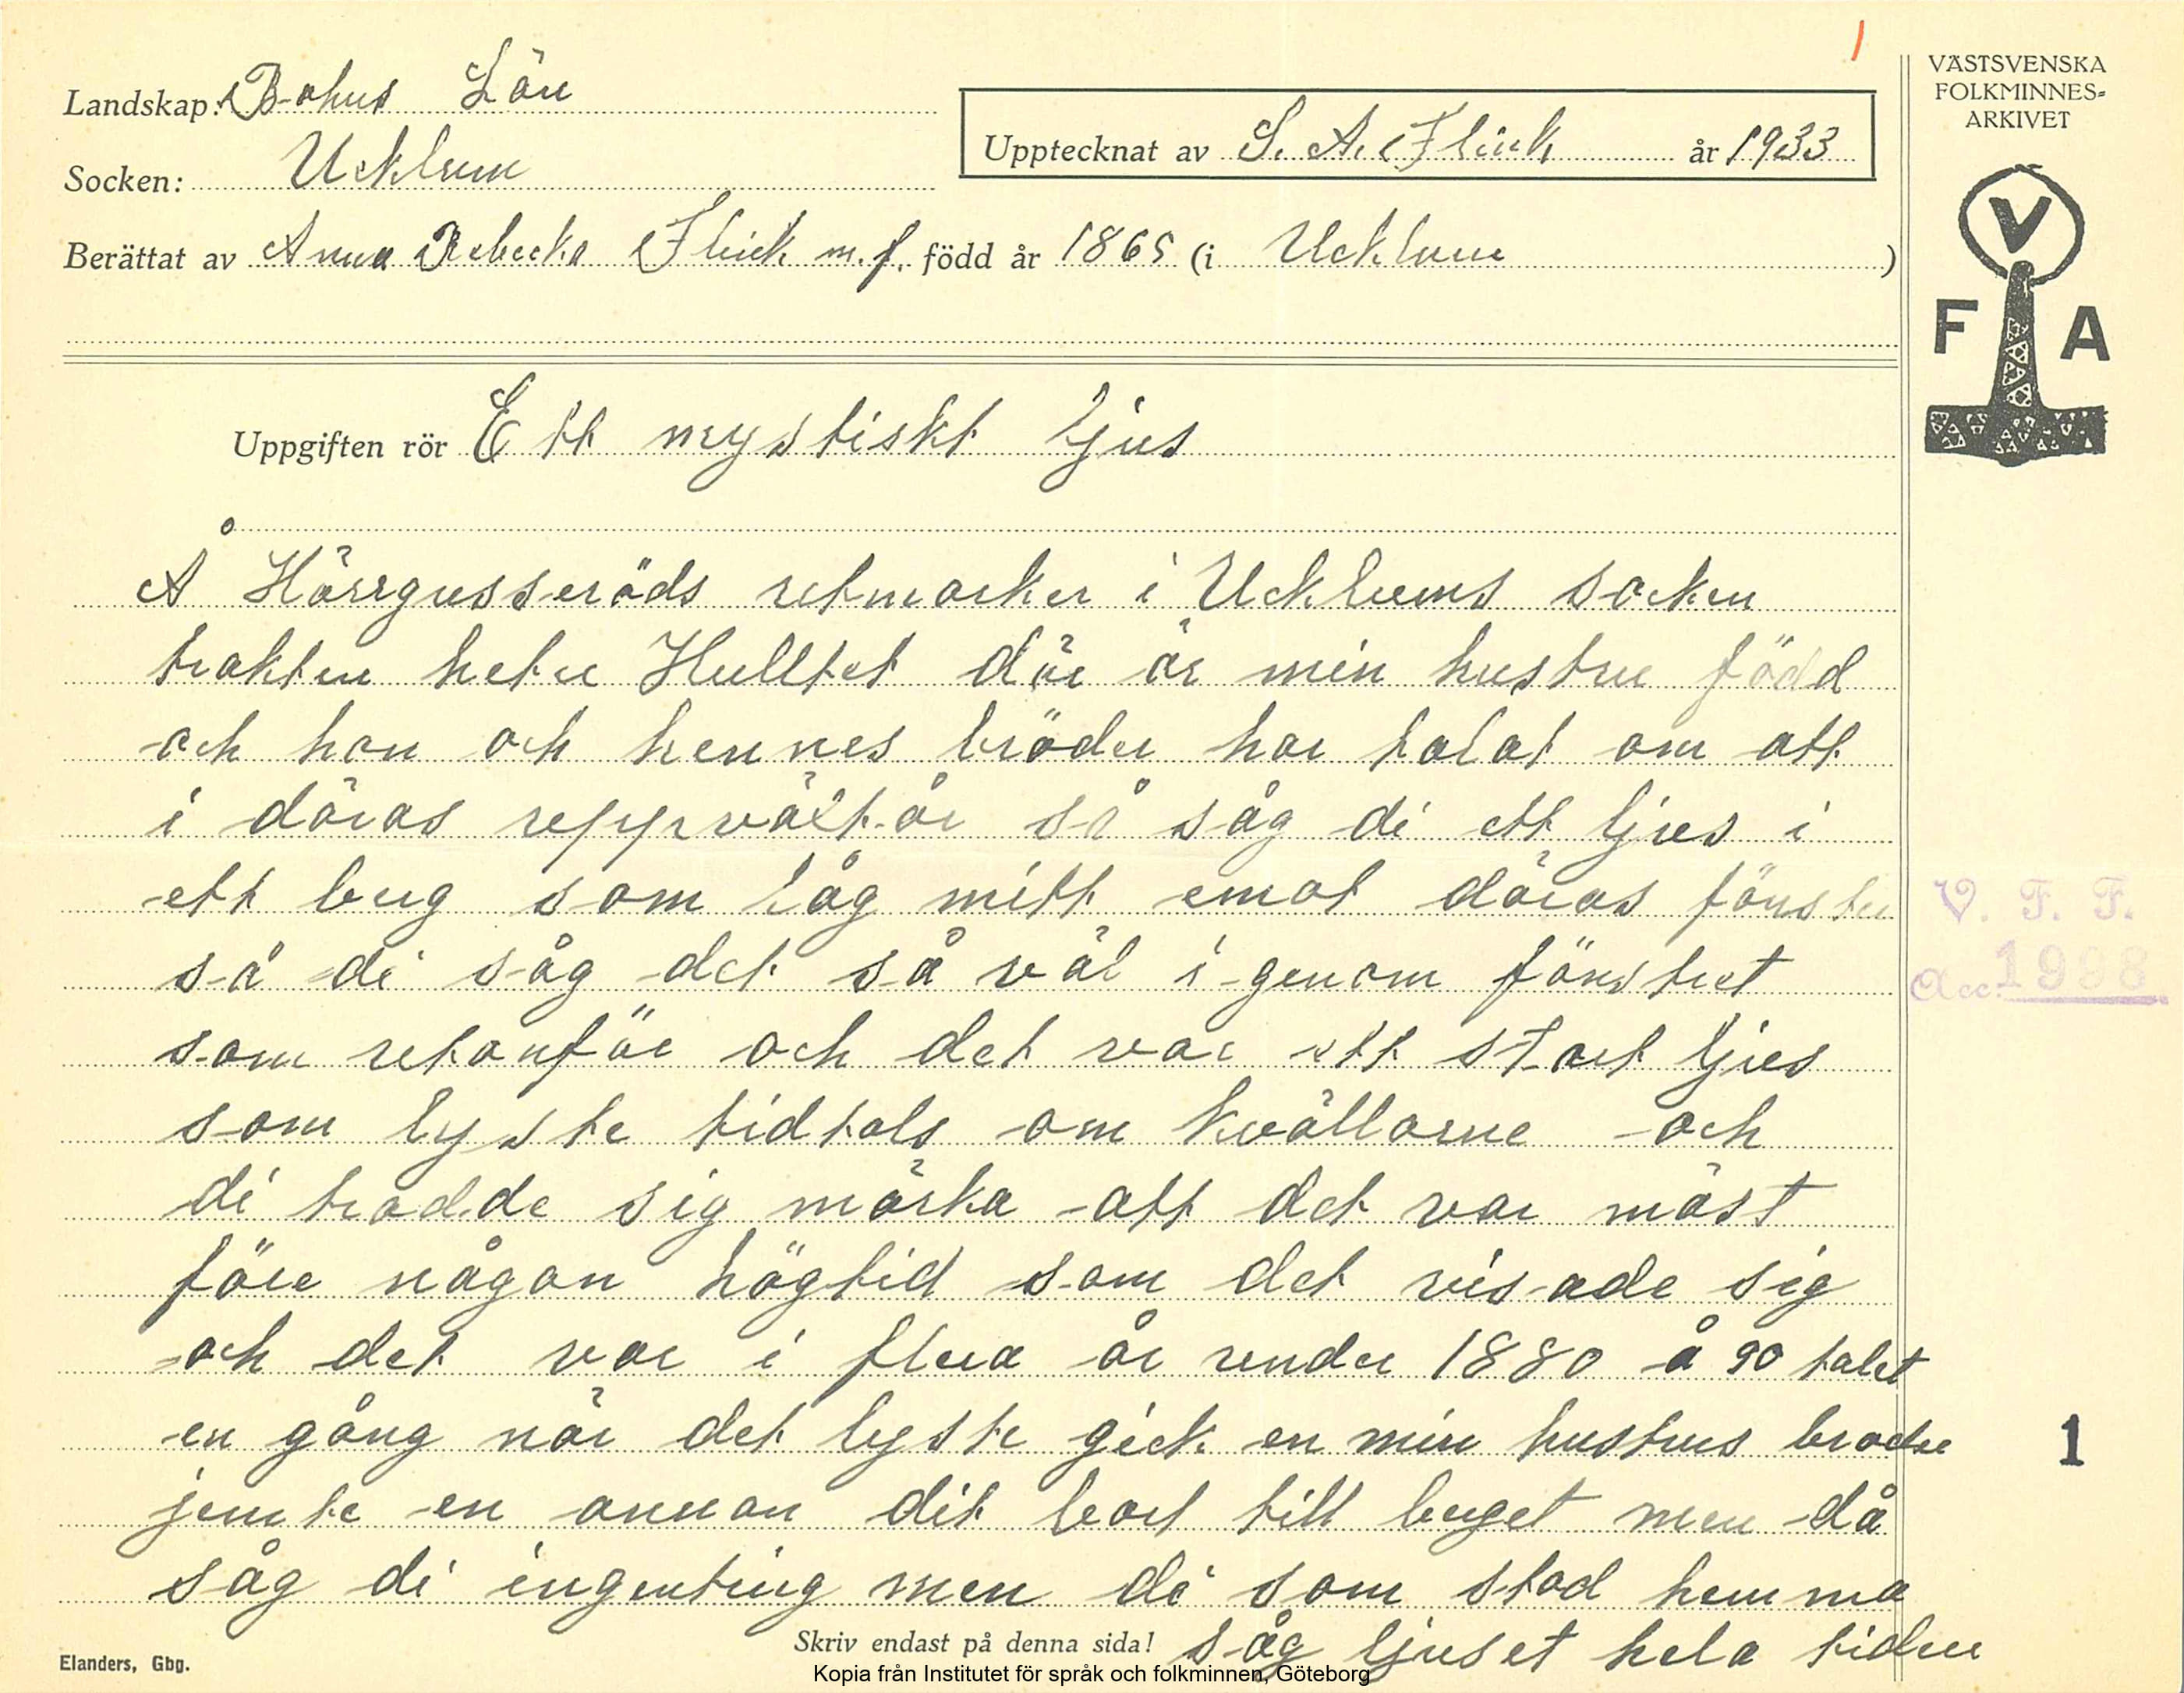 1
Landskap: Bohus Län
Socken: Ucklum
Upptecknat av S. A. Flink år 1933
Berättat av Anna Rebecka Flink m.f. född år 1865 (i Ucklum)
VÄSTSVENSKA
FOLKMINNES-
ARKIVET
V
F A
Uppgiften rör Ett mystiskt ljus
Å Härrgusseröds utmarker i Ucklums socken
trakten heter Hulltet där är min hustru född
och hon och hennes bröder har talat om att
i däras uppväxt år så såg di ett ljus i
ett berg som låg mitt emot däras fönster
så di såg det så väl i genom fönstret
som utanför och det var ett stort ljus
som lyste tidtals om kvällarne och
di trodde sig märka att det var mäst
före någon högtid som det visade sig
och det var i flera år under 1880 å 90 talet
en gång när det lyste gick en min hustrus broder
jemte en annan dit bort till berget men då
såg di ingenting men di som stod hemma
såg ljuset hela tiden
V. F. F.
Acc. 1998
1
Skriv endast på denna sida!
Elanders, Gbg.
Kopia från Institutet för språk och folkminnen, Göteborg